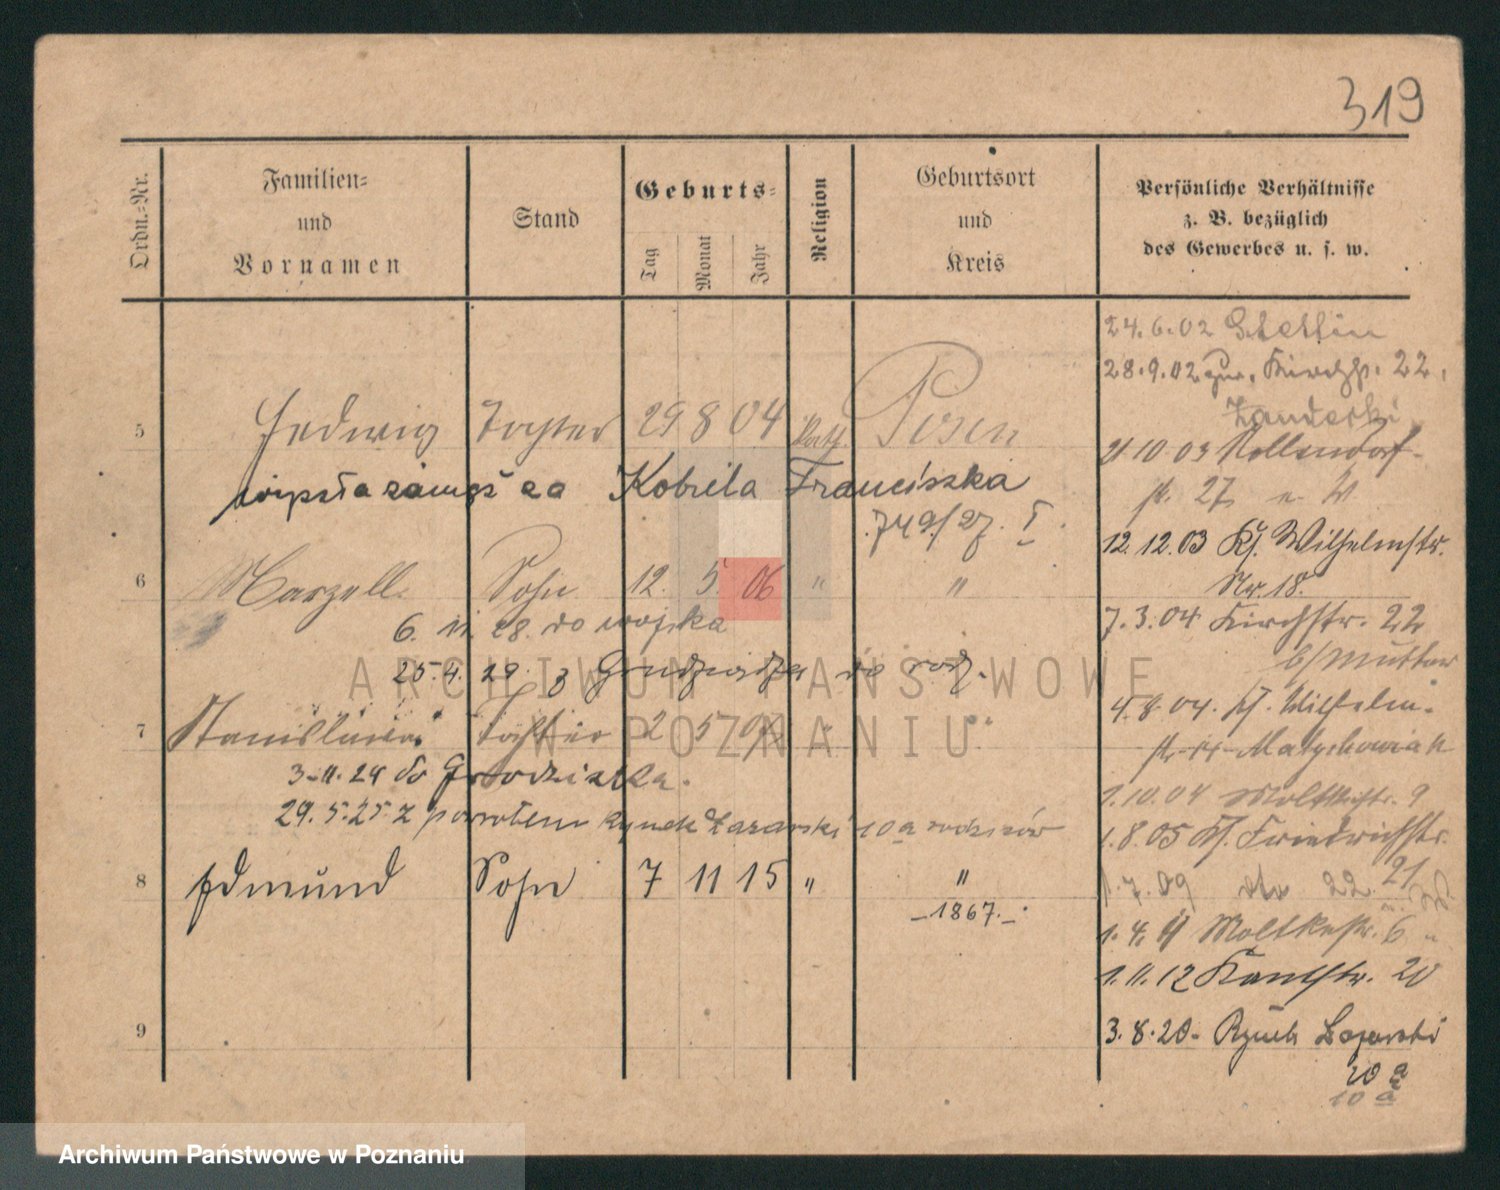 319
Ordn.-Nr.
Familien-
und
Vornamen
Stand
Geburts-
Tag
Monat
Jahr
Religion
Geburtsort
und
Kreis
Persönliche Verhältnisse
z. B. bezüglich
des Gewerbes u. s. w.
5 Hedwig Tochter 29 8 04 kath. Posen
wyszła zamąż za Kobiela Franciszka
749/27. I.
6 Marzell Sohn 12. 5. 06 " "
6. 11. 28. do wojska
25.4. 29. z Grudziądza do rodz.
7 Stanislawa Tochter 2 5 " "
3-11.24 do Grodziska.
29.5.25 z powrotem Rynek Łazarski 10a rodziców
8 Edmund Sohn 7 11 15 " "
-1867.-
9
24.6.02 Stettin
28.9.02 zur. Kirchstr. 22.
21.10.03 Nollendorf-
str. 27
12.12.03 Kf. Wilhelmstr.
Nr. 18.
7.3.04 Kirchstr. 22
b/Mutter
4.8.04. Kf. Wilhelm-
str. Matychowiak
1.10.04 Moltkestr. 9
1.8.05 Kf. Friedrichstr.
21
1.7.09 dto 22.
1.4.11 Moltkestr. 6
1.11.12 Kantstr. 20
3.8.20- Rynek Łazarski
10 a
10 a
ARCHIWUM PAŃSTWOWE
W POZNANIU
Archiwum Państwowe w Poznaniu